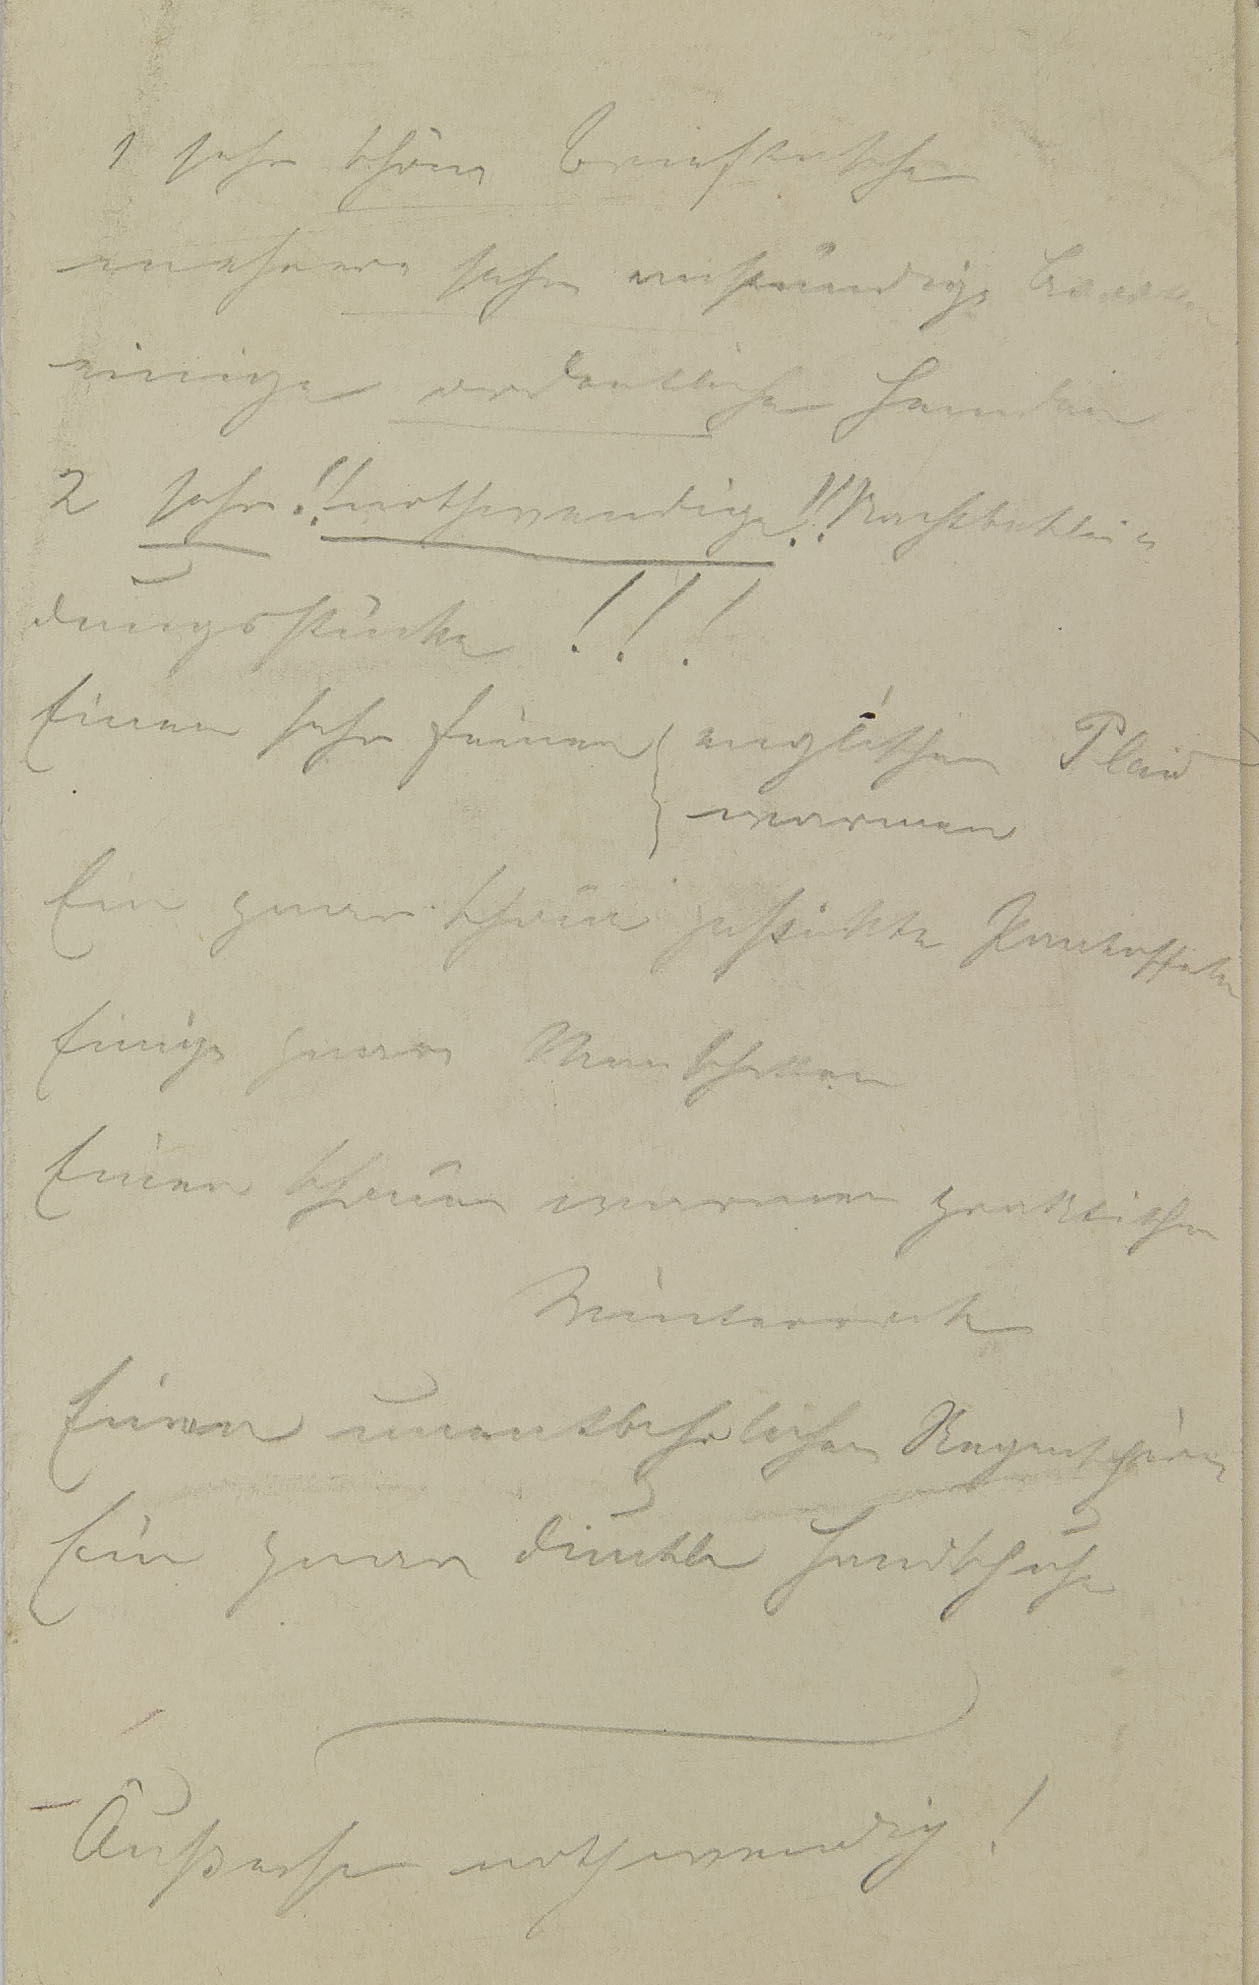 1 sehr schöne Brieftasche
mehrere sehr anständige
einige ordentliche Hemden
2 sehr!! nothwendige!!! Nachtbeklei-
dungsstücke !!!
Einen sehr feinen { englischen Plaid
warmen
Ein paar schön gestickte Pantoffeln
Einige paare Manschetten
Einen schönen warmen praktischen
Winterrock
Einen unentbehrlichen Regenschirm
Ein paar dunkle Handschuhe
Äußerst nothwendig!